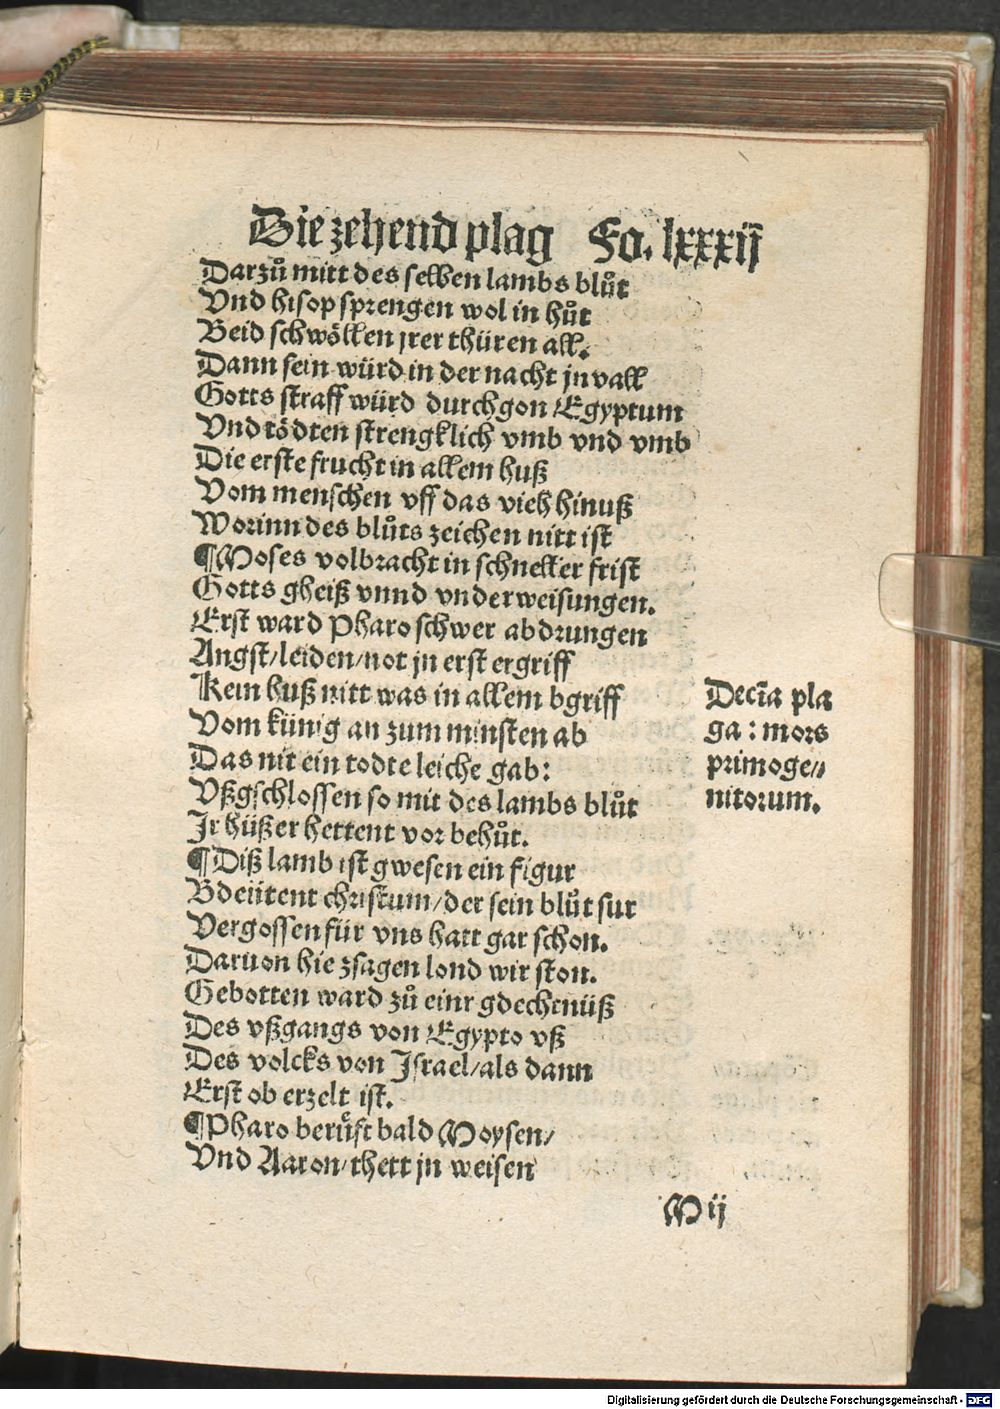 Die zehend plag Fo. lxxxij
Darzů mitt des selben lambs blůt
Vnd hisop sprengen wol in hůt
Beid schwöllen jrer thüren all.
Dann sein würd in der nacht jnvall
Gotts straff würd durchgon Egyptum
Vnd tödten strengklich vmb vnd vmb
Die erste frucht in allem huß
Vom menschen vff das vieh hinuß
Worinn des blůts zeichen nitt ist
¶Moses volbracht in schneller frist
Gotts gheiß vnnd vnderweisungen.
Erst ward Pharo schwer abdrungen
Angst/leiden/not jn erst ergriff
Kein huß nitt was in allem bgriff
Vom künig an zum minsten ab
Das nit ein todte leiche gab:
Vßgschlossen so mit des lambs blůt
Jr hüßer hettent vor behůt.
Decīa pla
ga: mors
primoge//
nitorum.
¶Diß lamb ist gwesen ein figur
Bdeütent christum/der sein blůt sur
Vergossen für vns hatt gar schon.
Daruon hie zsagen lond wir ston.
Gebotten ward zů einr gdechtnüß
Des vßgangs von Egypto vß
Des volcks von Jsrael/als dann
Erst ob erzelt ist.
¶Pharo berůft bald Moysen/
Vnd Aaron/thett jn weisen
M ij
Digitalisierung gefördert durch die Deutsche Forschungsgemeinschaft - DFG